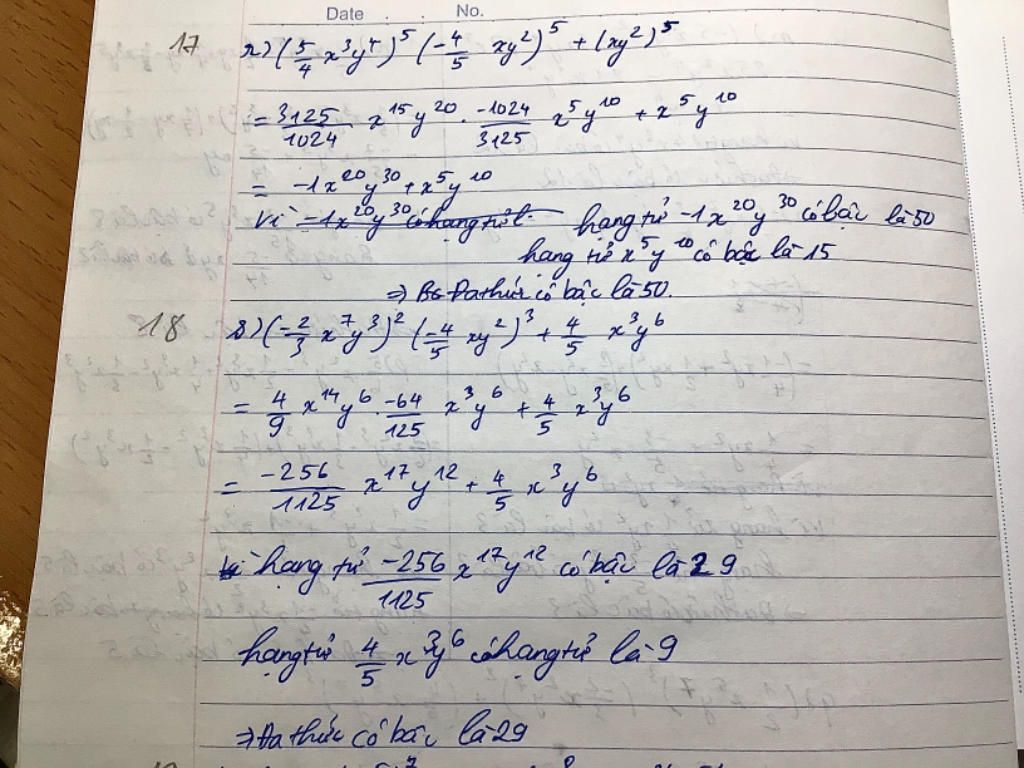 Date . . No.
17 r) (5/4 x³y⁴)⁵ (-4/5 xy²)⁵ + (xy²)⁵
= 3125/1024 x¹⁵y²⁰ . -1024/3125 x⁵y¹⁰ + x⁵y¹⁰
= -1x²⁰y³⁰ + x⁵y¹⁰
Vì -1x²⁰y³⁰ có hạng tử hạng tử -1x²⁰y³⁰ có bậc là 50
hạng tử x⁵y¹⁰ có bậc là 15
⇒ Đa thức có bậc là 50.
18 s) (-2/3 x⁷y³)² (-4/5 xy²)³ + 4/5 x³y⁶
= 4/9 x¹⁴y⁶ . -64/125 x³y⁶ + 4/5 x³y⁶
= -256/1125 x¹⁷y¹² + 4/5 x³y⁶
Vì hạng tử -256/1125 x¹⁷y¹² có bậc là 29
hạng tử 4/5 x³y⁶ có hạng tử là 9
⇒ Đa thức có bậc là 29